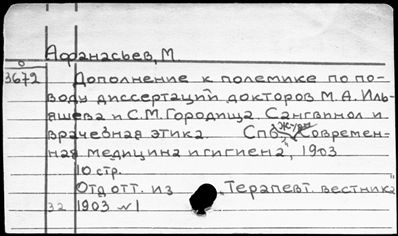 Афанасьев, М
3672 Дополнение к полемике по по-
воду диссертаций докторов М.А. Иль-
яшева и С.М. Городища. Сангвинол и
врачебная этика. Спб, журн. Современ-
ная медицина и гигиена, 1903
10 стр.
Отд отт. из „Терапевт. вестника"
32 1903 №1